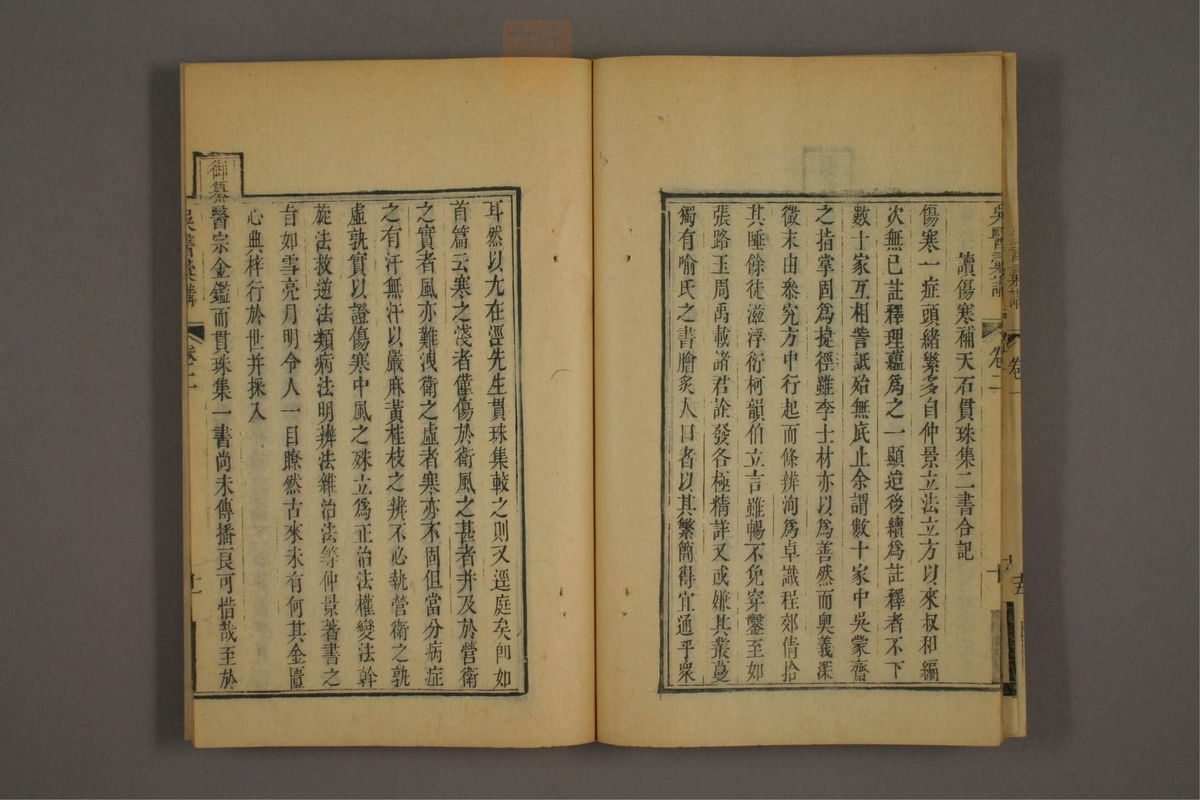 吳醫彙講
卷二
讀傷寒補天石貫珠集二書合記
傷寒一症頭緒繁多自仲景立法立方以來叔和編
次無已註釋理蘊爲之一顯迨後續爲註釋者不下
數十家互相訾詆殆無底止余謂數十家中吳蒙齋
之指掌固爲捷徑雖李士材亦以爲善然而奧義深
微未由叅究方中行起而條辨洵爲卓識程郊倩拾
其唾餘徒滋浮衍柯韻伯立言雖暢不免穿鑿至如
張路玉周禹載諸君詮發各極精詳又或嫌其叢蔓
獨有喻氏之書膾炙人口者以其繁簡得宜通乎衆
耳然以尤在涇先生貫珠集較之則又逕庭矣卽如
首篇云寒之淺者僅傷於衛風之甚者并及於營衛
之實者風亦難洩衛之虛者寒亦不固但當分病症
之有汗無汗以嚴麻黃桂枝之辨不必執營衛之孰
虛孰實以證傷寒中風之殊立爲正治法權變法斡
旋法救逆法類病法明辨法雜治法等仲景著書之
旨如雪亮月明令人一目瞭然古來未有何其金匱
心典梓行於世并採入
御纂醫宗金鑑而貫珠集一書尚未傳播良可惜哉至於
吳醫彙講
卷二